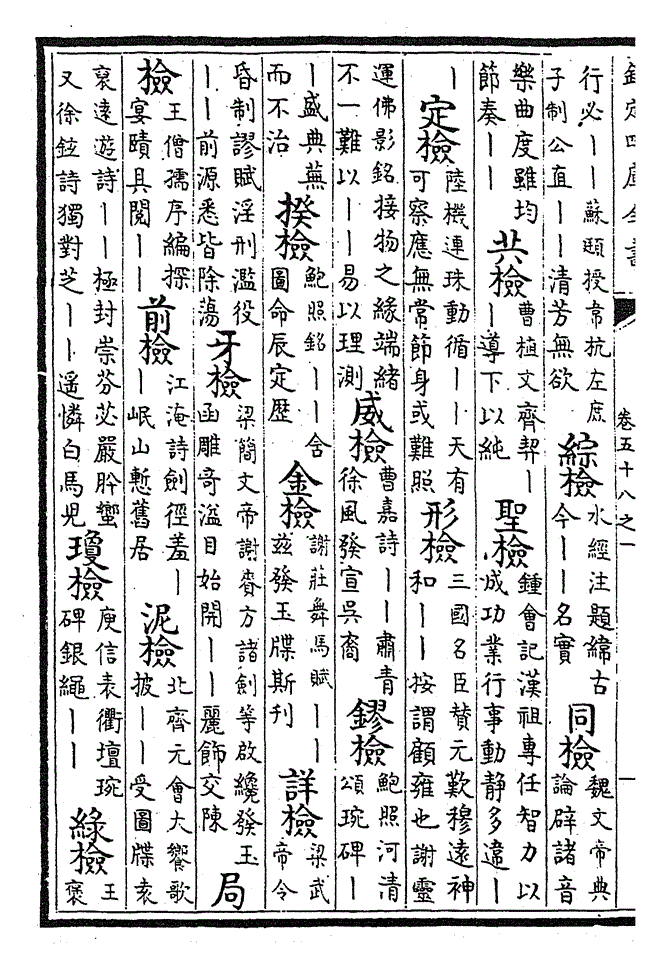 卷五十八之一
一
行必丨丨蘇頲授韋抗左庶
子制公直丨丨清芳無欲
綜檢
水經注題緯古
今丨丨名實
同檢
魏文帝典
論辟諸音
樂曲度雖均
節奏丨丨
共檢
曹植文齊契丨
丨導下以純
聖檢
鍾會記漢祖專任智力以
成功業行事動靜多違丨
丨
定檢
陸機連珠動循丨丨天有
可察應無常節身或難照
形檢
三國名臣賛元歎穆遠神
和丨丨按謂顧雍也謝靈
運佛影銘接物之緣端緒
不一難以丨丨易以理測
威檢
曹嘉詩丨丨肅青
徐風發宣吳裔
鏐檢
鮑照河清
頌琬碑丨
丨盛典蕪
而不治
揆檢
鮑照銘丨丨含
圖命辰定歷
金檢
謝莊舞馬賦丨丨
兹發玉牒斯刋
詳檢
梁武
帝令
昏制謬賦淫刑濫役
丨丨前源悉皆除蕩
牙檢
梁簡文帝謝賚方諸劍等啟纔發玉
函雕奇溢目始開丨丨麗飾交陳
局
檢
王僧孺序編探
宴賾具閱丨丨
前檢
江淹詩劍徑羞丨
丨岷山慙舊居
泥檢
北齊元會大饗歌
披丨丨受圖牒袁
裒遠遊詩丨丨極封崇芬苾嚴肸蠁
又徐鉉詩獨對芝丨丨丨遥憐白馬兕
瓊檢
庾信表衢壇琬
碑銀繩丨丨
綠檢
王
褒